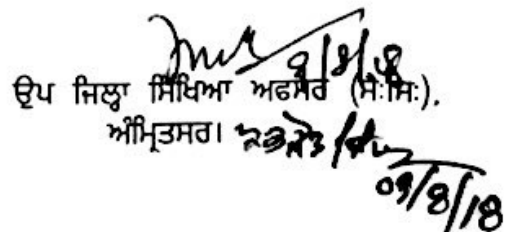 9/8/18
ਉਪ ਜਿਲ੍ਹਾ ਸਿੱਖਿਆ ਅਫਸਰ (ਸੈ:ਸਿ:),
ਅੰਮ੍ਰਿਤਸਰ।
09/8/18